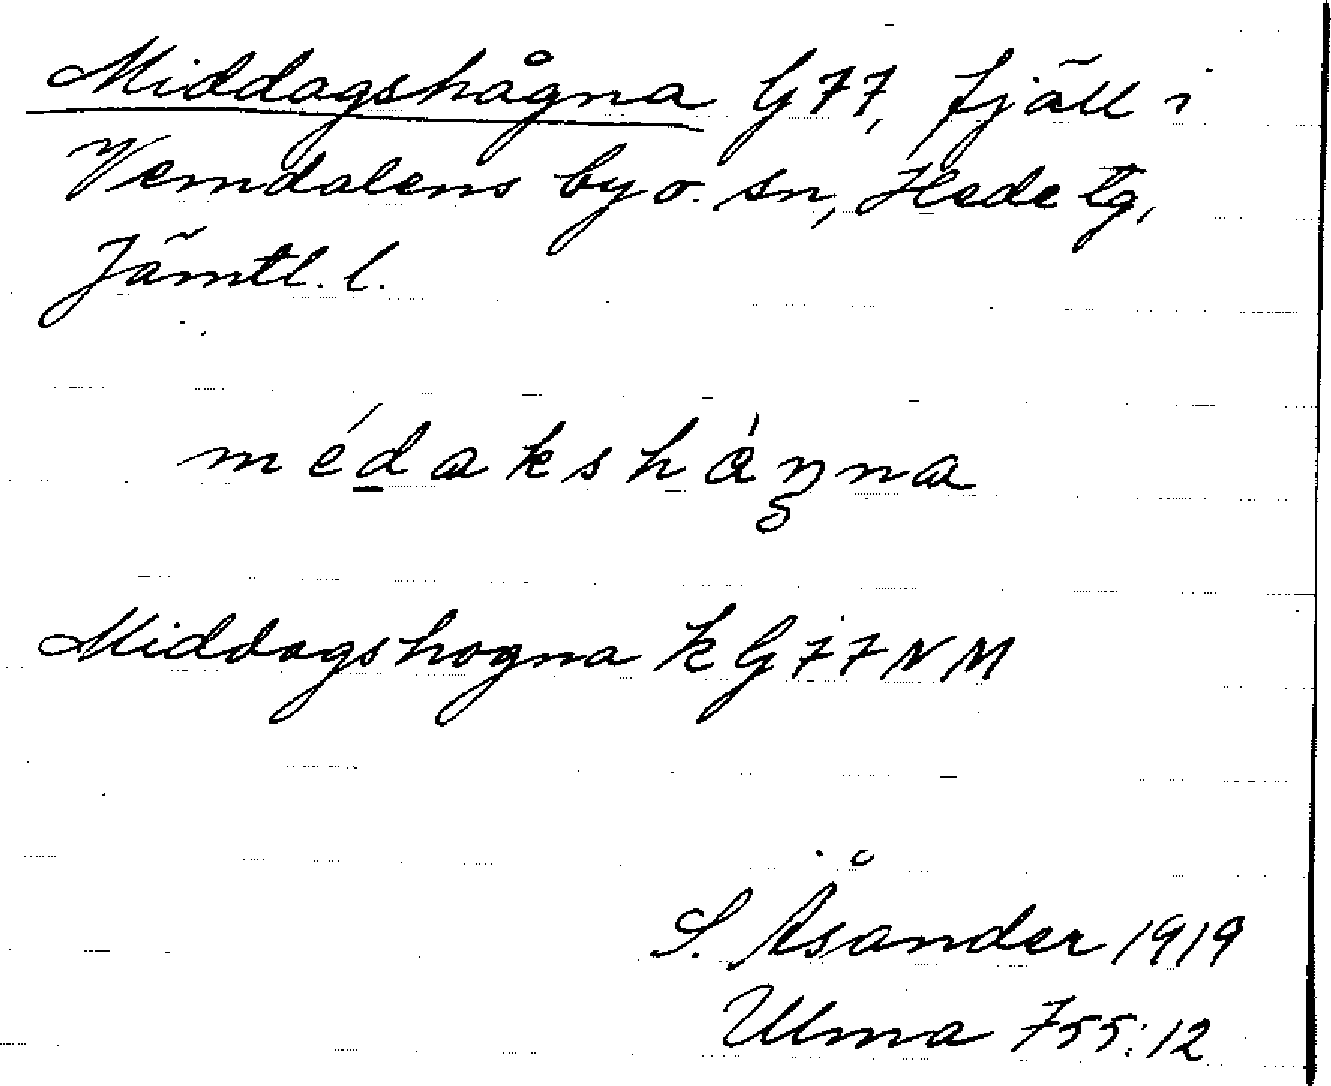 Middagshågna G77, fjäll i
Vemdalens by o. sn, Hede tg,
Jämtl. l.
médakshåŋna
Middagshogna k G77NM
S. Åsander 1919
Ulma 755:12